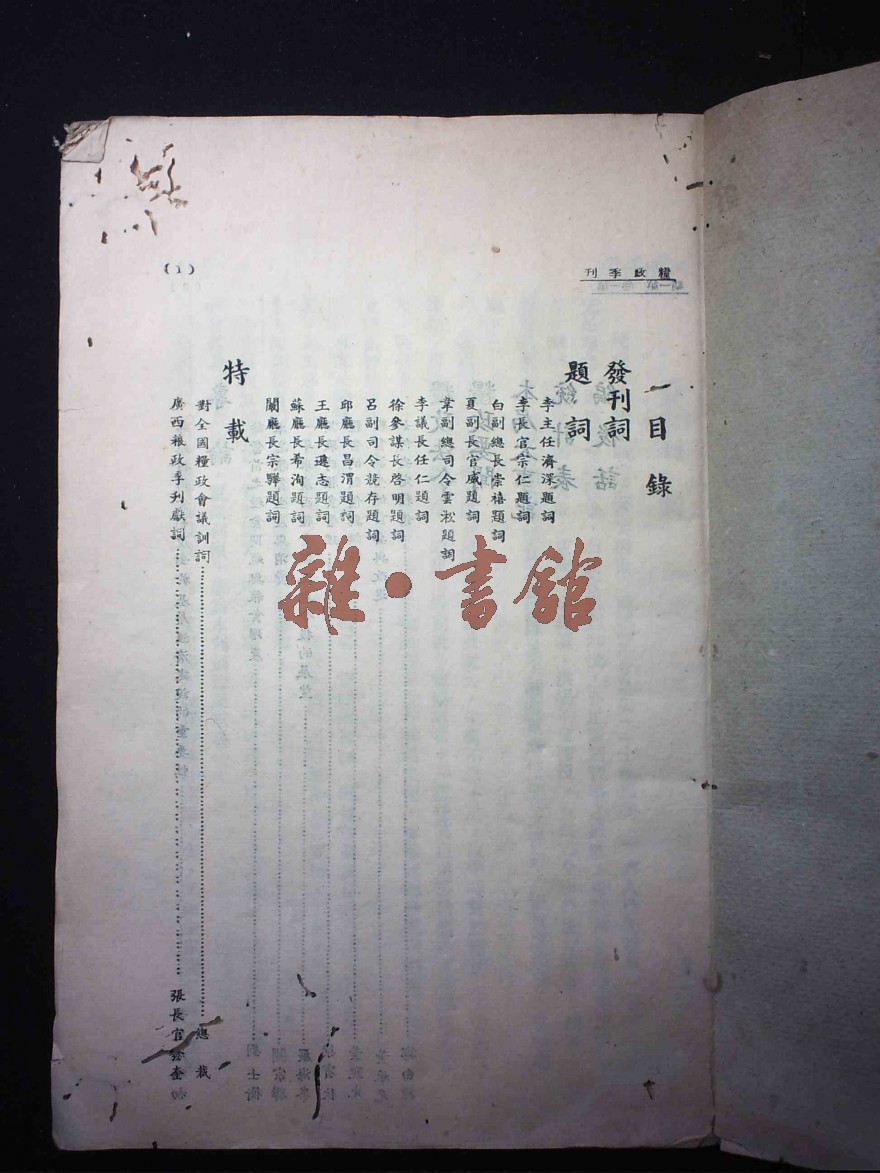 糧政季刊
目錄
發刊詞
題詞
李主任濟深題詞
李長官宗仁題詞
白副總長崇禧題詞
夏副長官威題詞
韋副總司令雲淞題詞
李議長任仁題詞
徐參謀長啓明題詞
呂副司令競存題詞
邱廳長昌渭題詞
王廳長遜志題詞
蘇廳長希洵題詞
闞廳長宗驊題詞
特載
對全國糧政會議訓詞 總裁
廣西粮政季刊獻詞 張長官發奎
(1)
雜·書館